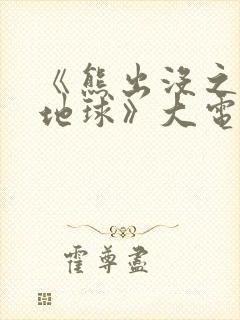 《熊出没之
地球》大电
霍尊尽